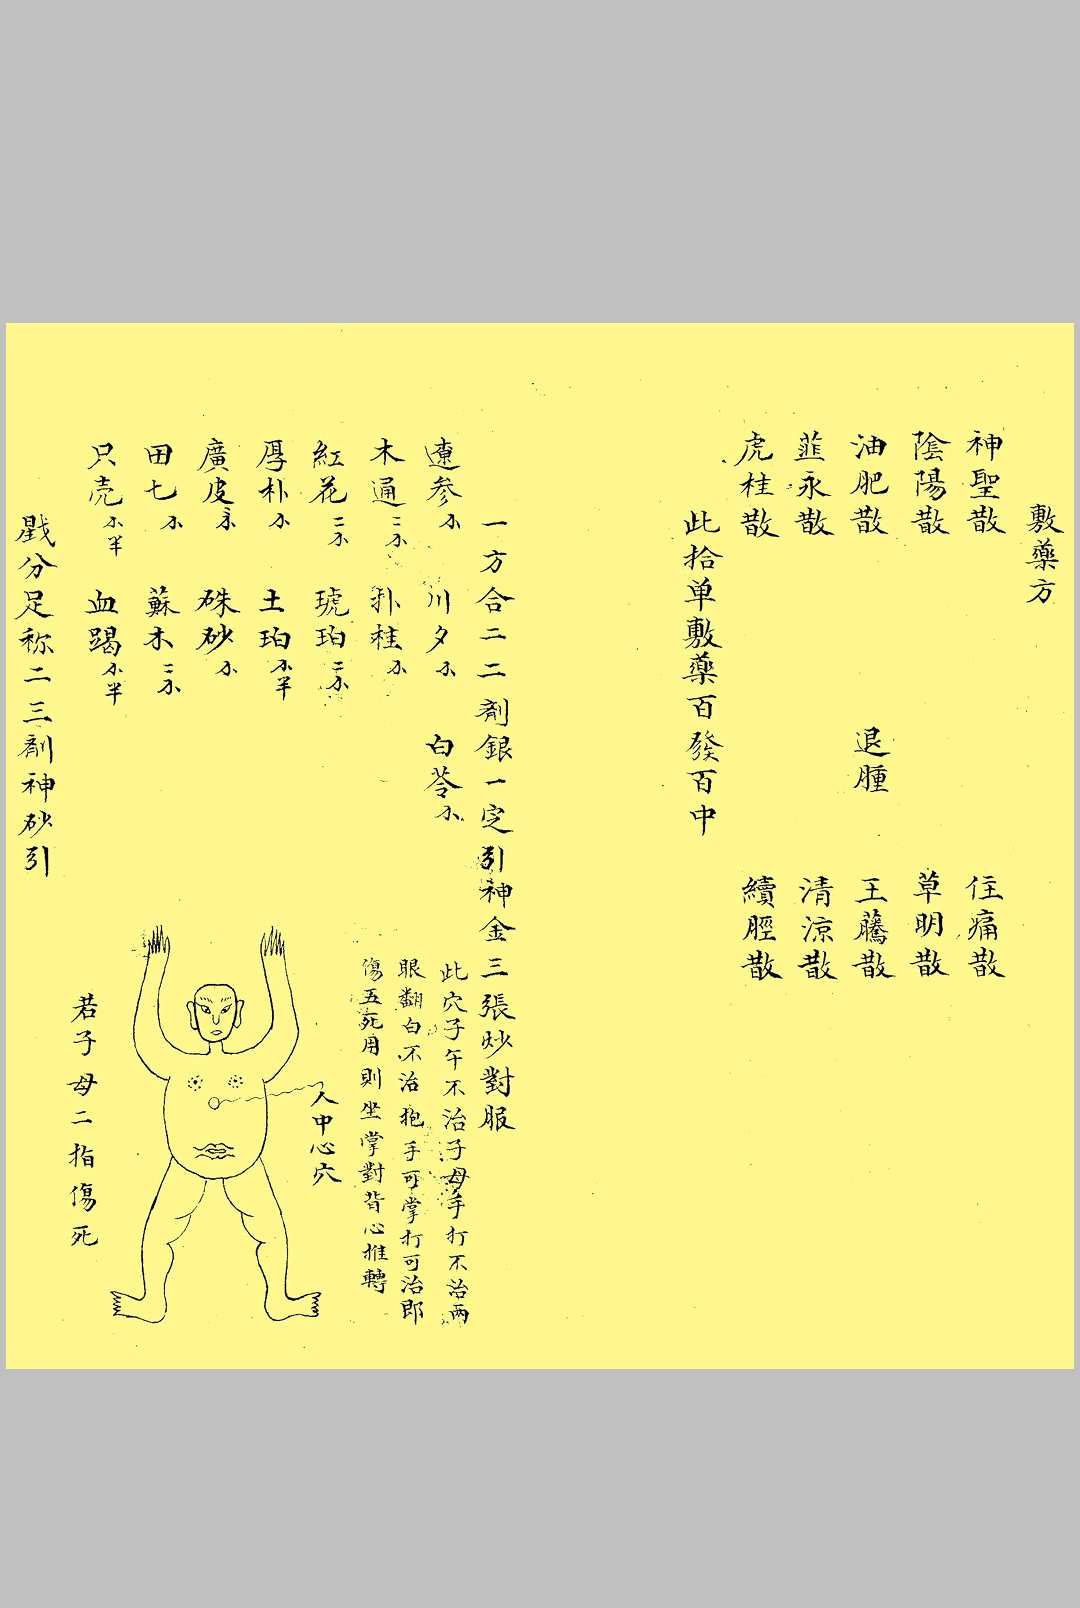 敷藥方
神聖散 住痛散
陰陽散 草明散
油肥散 退腫 王藤散
韮永散 清涼散
虎桂散 續脛散
此拾单敷藥百發百中
一方合二二剤銀一定引神金三張炒對服
遼参 川夕 白苓
木通 扑桂
紅花 琥珀
厚朴 土珀
廣皮 硃砂
田七 蘇木
只壳 半 血蹋 半
戥分足称二三剤神砂引
此穴子午不治子母手打不治两
眼翻白不治抱手可掌打可治即
傷五死用則坐掌對背心推轉
人中心穴
若子母二指傷死